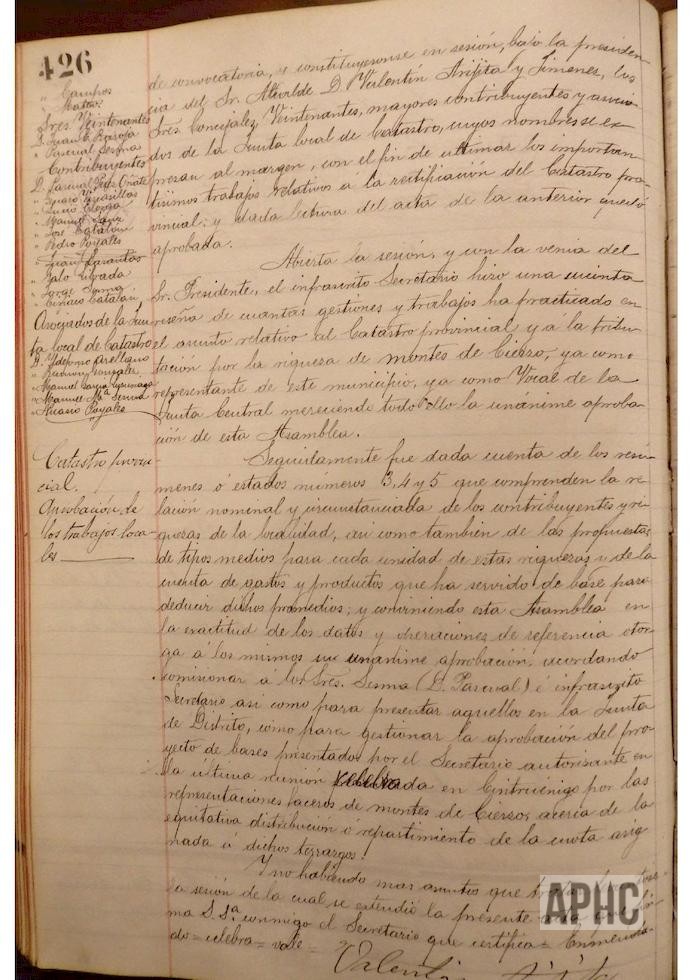 426
" Campos
" Mateo
Sres. Veintenantes
D. Juan C. Baroja
" Pascual Sesma
Contribuyentes
D. Pascual Oñate
" Lucio
" Manuel Sanz
" José Catalán
" Pedro Poyales
" Juan
" Galo
" Jorge Sesma
" Catalán
Asociados de la Jun-
ta local de Catastro
D. Ildefonso Arellano
" González
" Manuel García
" Manuel Mª Sesma
" Nicasio Poyales
Catastro provin-
cial.
Aprobación de
los trabajos loca-
les
de convocatoria, y constituyeronse en sesión, bajo la presiden-
cia del Sr. Alcalde D. Valentín Arifita y Jimenes, los
Sres. Concejales, Veintenantes, mayores contribuyentes y asocia-
dos de la Junta local de Catastro, cuyos nombres se ex-
presan al margen, con el fin de ultimar los importan-
tísimos trabajos relativos á la rectificación del Catastro pro-
vincial; y dada lectura del acta de la anterior quedó
aprobada.
Abierta la sesión, y con la venia del
Sr. Presidente, el infrascrito Secretario hizo una sucinta
reseña de cuantas gestiones y trabajos ha practicado en
el asunto relativo al Catastro provincial y á la tribu-
tación por la riqueza de montes de Cierzo, ya como
representante de este municipio, ya como Vocal de la
Junta Central mereciendo todo ello la unánime aproba-
ción de esta Asamblea.
Seguidamente fue dada cuenta de los resú-
menes ó estados números 3, 4 y 5 que comprenden la re-
lación nominal y circunstanciada de los contribuyentes y ri-
quezas de la localidad, así como también de las propuestas
de tipos medios para cada unidad de estas riquezas y de la
cuenta de gastos y productos que ha servido de base para
deducir dichos promedios; y conviniendo esta Asamblea en
la exactitud de los datos y operaciones de referencia otor-
ga á los mismos su unánime aprobación, acordando
comisionar á los Sres. Sesma (D. Pascual) é infrascrito
Secretario así como para presentar aquellos en la Junta
de Distrito, como para gestionar la aprobación del pro-
yecto de bases presentados por el Secretario autorizante en
la última reunión celebrada en Cintruénigo por las
representaciones faceros de montes de Cierzo, acerca de la
equitativa distribución ó repartimiento de la cuota asig-
nada á dichos terrazgos.
Y no habiendo mas asuntos que
la sesión de la cual se extendió la presente acta que
ma S. Sª. conmigo el Secretario que certifica = Enmenda-
do = celebra = vale =
Valentín
APHC